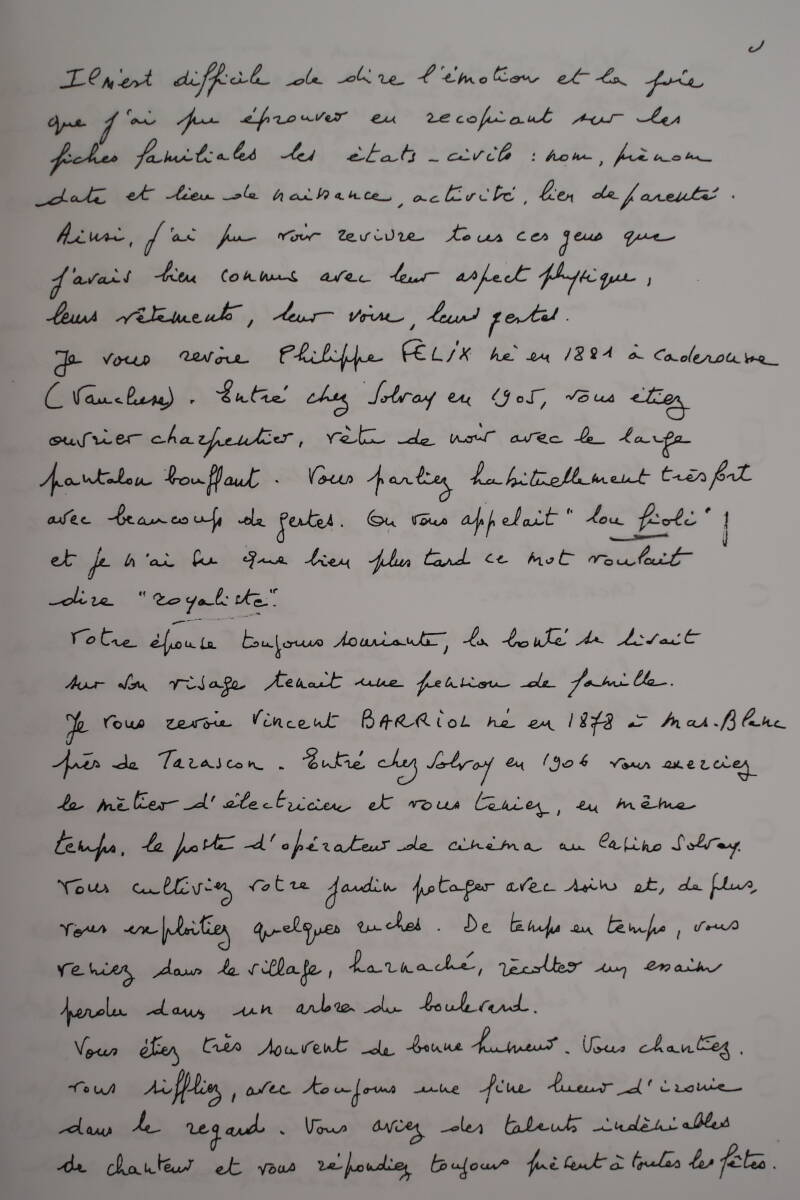 Il m'est difficile de dire l'émotion et la joie
que j'ai pu éprouver en recopiant sur les
fiches familiales les états-civils : nom, prénom
date et lieu de naissance, activité, lien de parenté.
Ainsi, j'ai pu voir revivre tous ces gens que
j'avais bien connus avec leur aspect physique,
leurs vêtements, leur voix, leurs gestes.
Je vous revois Philippe FELIX né en 1881 à Caderousse
(Vaucluse). Entré chez Solvay en 1905, vous étiez
ouvrier charpentier, vêtu de noir avec le large
pantalon bouffant. Vous parliez habituellement très fort
avec beaucoup de gestes. On vous appelait "lou fioli"
et je n'ai su que bien plus tard ce mot voulait
dire "royaliste".
Votre épouse toujours souriante, la bonté se lisait
sur son visage tenait une pension de famille.
Je vous revois Vincent BARRIOL né en 1878 à Mas-Blanc
près de Tarascon. Entré chez Solvay en 1906 vous exerciez
le métier d'électricien et vous teniez, en même
temps, le poste d'opérateur de cinéma au Casino Solvay.
Vous cultiviez votre jardin potager avec soin et, de plus,
vous exploitiez quelques ruches. De temps en temps, vous
veniez dans le village, harnaché, récolter un essaim
perdu dans un arbre du boulevard.
Vous étiez très souvent de bonne humeur. Vous chantiez.
vous siffliez, avec toujours une fine lueur d'ironie
dans le regard. Vous aviez des talents indéniables
de chanteur et vous répondiez toujours présent à toutes les fêtes.